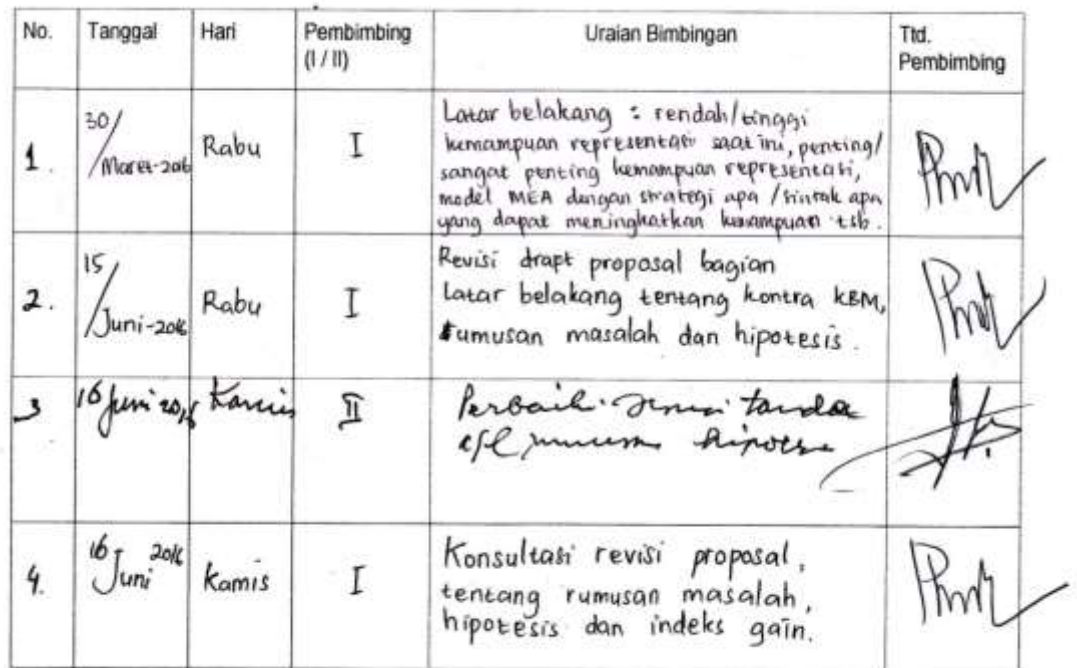 No. Tanggal Hari Pembimbing Uraian Bimbingan Ttd.
(I / II) Pembimbing
1. 30/ Rabu I Latar belakang : rendah/tinggi
Maret-2016 kemampuan representasi saat ini, penting/
sangat penting kemampuan representasi,
model MEA dengan strategi apa /sintak apa
yang dapat meningkatkan kemampuan tsb.
2. 15/ Rabu I Revisi drapt proposal bagian
Juni-2016 Latar belakang tentang kontra KBM,
rumusan masalah dan hipotesis.
3 16 Juni 2016 Kamis II Perbaiki sesuai tanda
hipotesis
4. 16 Juni 2016 Kamis I Konsultasi revisi proposal,
tentang rumusan masalah,
hipotesis dan indeks gain.